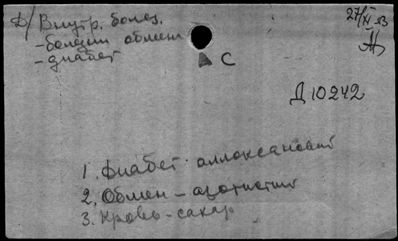 Д/ Внутр. болез.
-болезни обмена
-диабет
27/XI 53
С
Д 10242
1. Диабет аллоксановый
2. Обмен - азотистый
3. Кровь - сахар